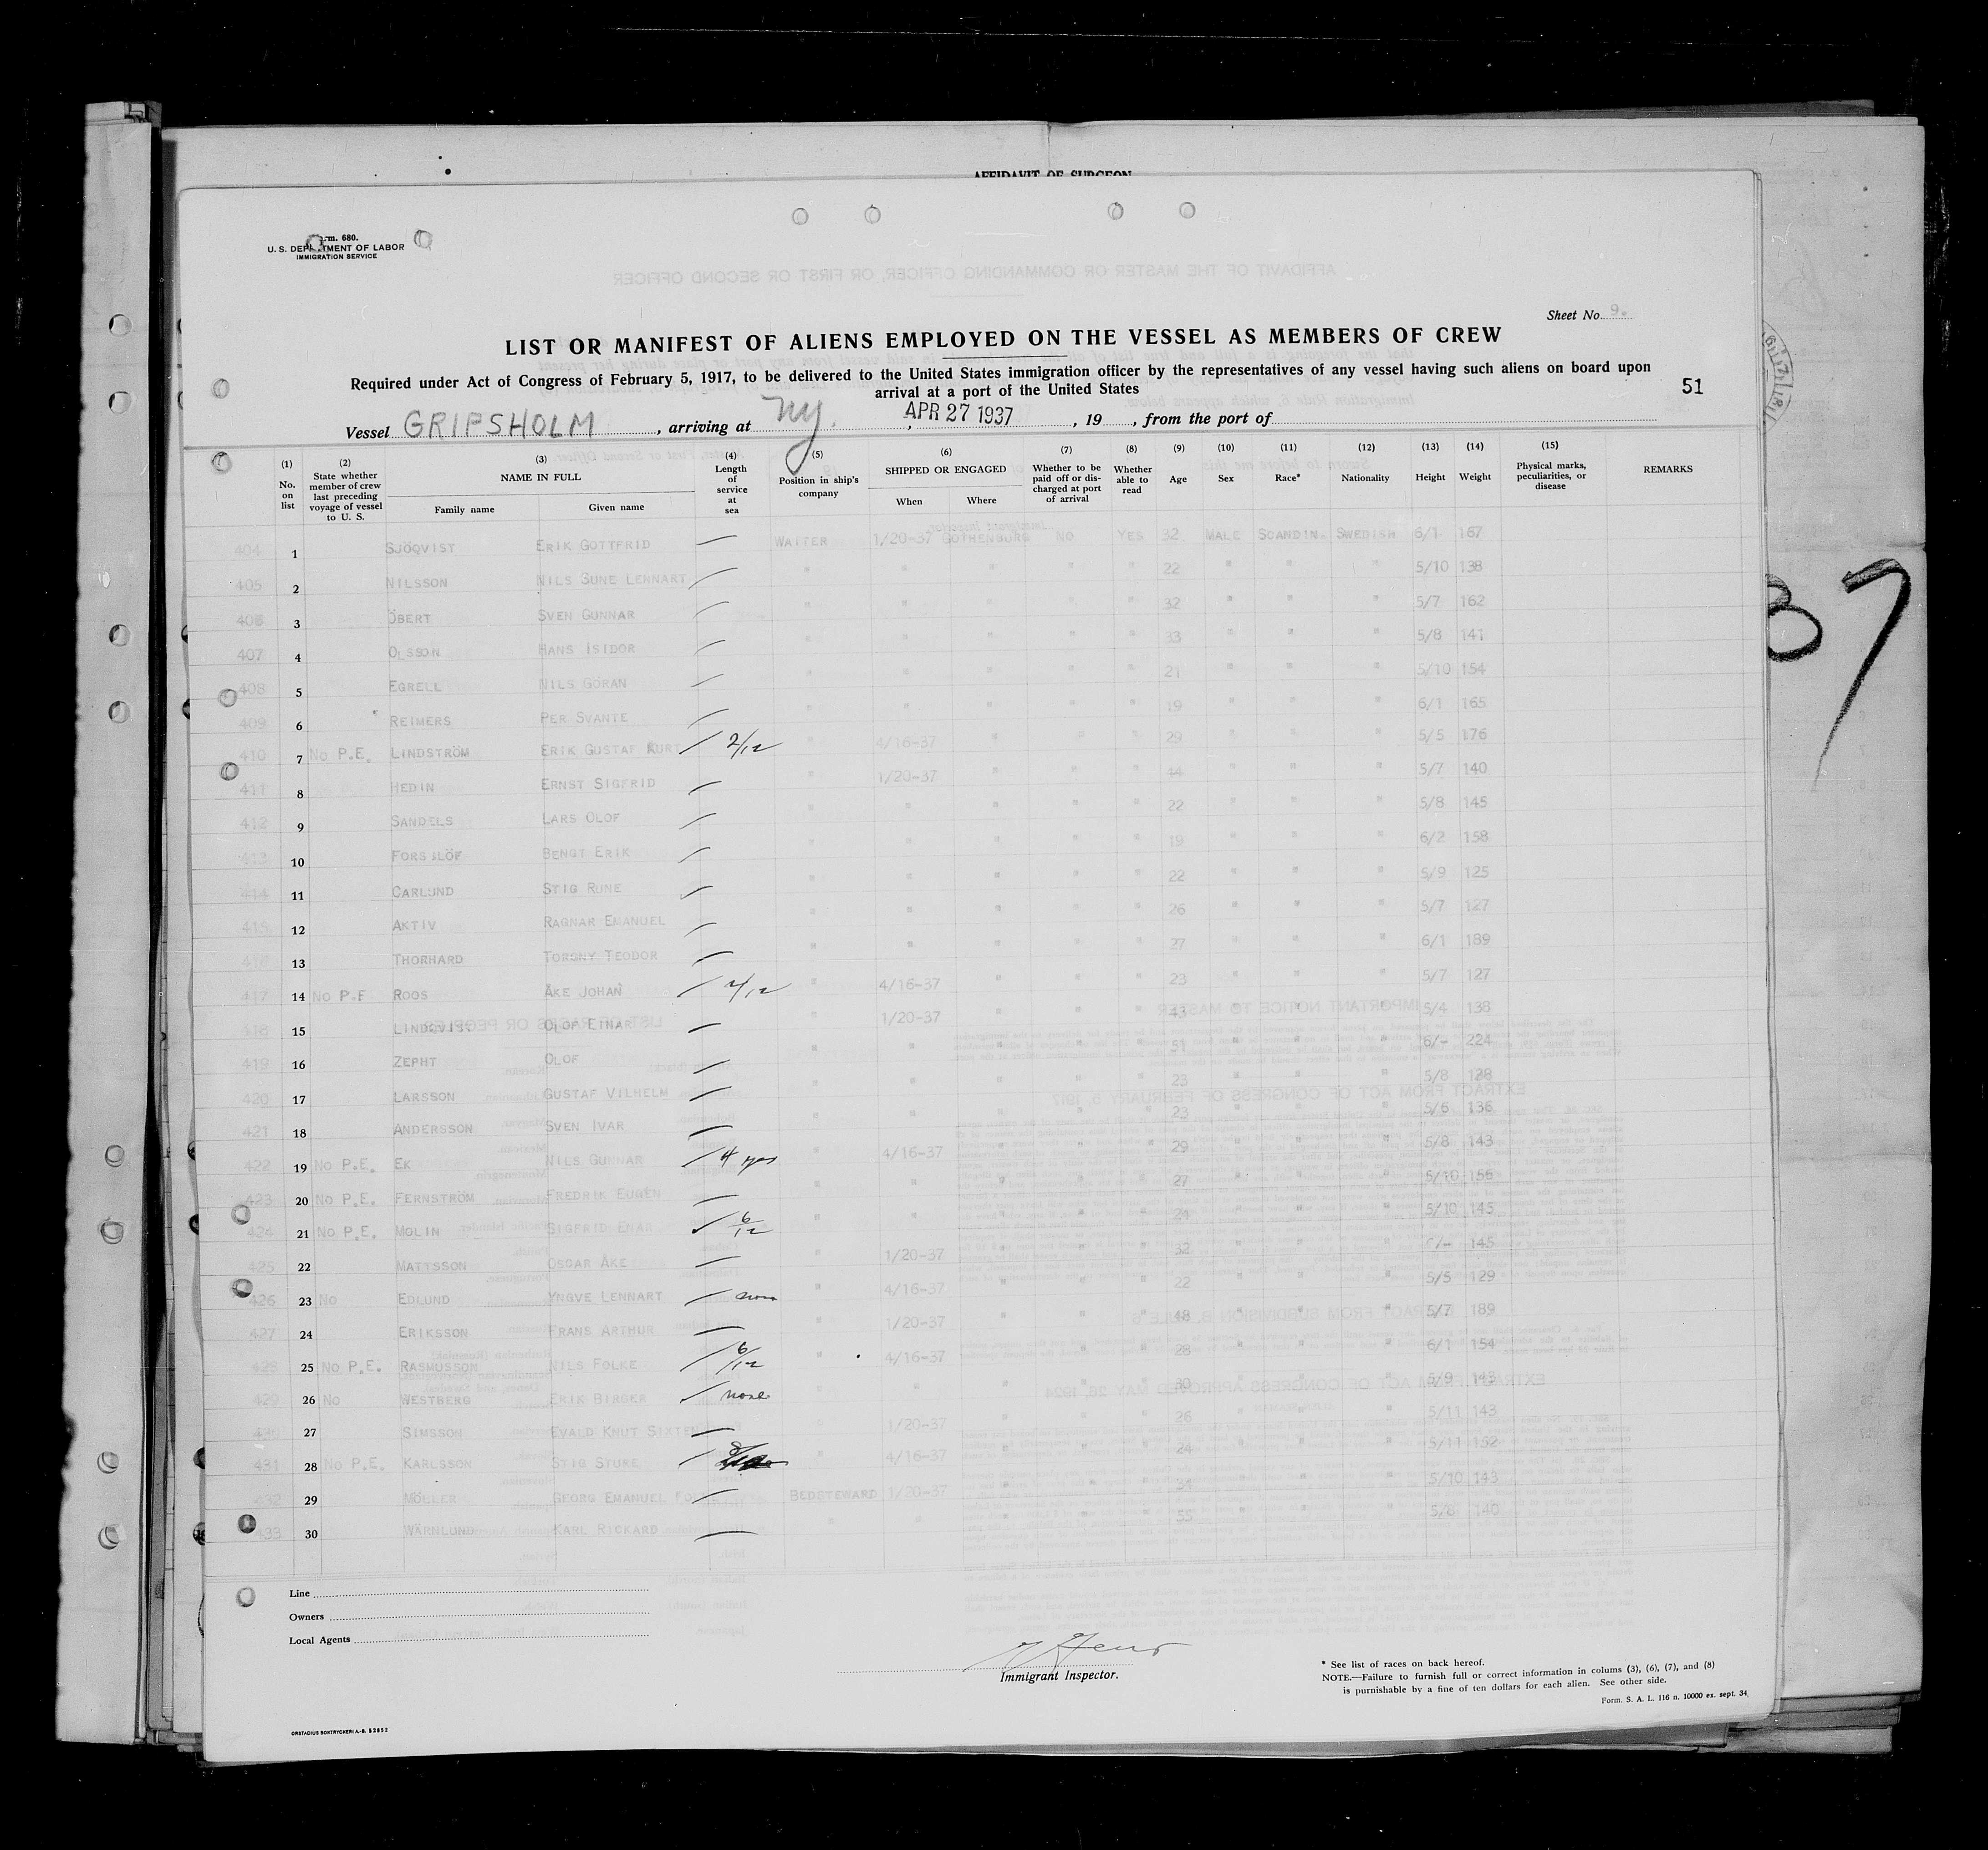 AFFIDAVIT OF SURGEON
Form. 680.
U. S. DEPARTMENT OF LABOR
IMMIGRATION SERVICE
Sheet No. 9.
LIST OR MANIFEST OF ALIENS EMPLOYED ON THE VESSEL AS MEMBERS OF CREW
Required under Act of Congress of February 5, 1917, to be delivered to the United States immigration officer by the representatives of any vessel having such aliens on board upon
arrival at a port of the United States
51
Vessel GRIPSHOLM, arriving at NY., APR 27 1937, 19, from the port of
(1) No. on list (2) State whether member of crew last preceding voyage of vessel to U. S. (3) NAME IN FULL Family name Given name (4) Length of service at sea (5) Position in ship's company (6) SHIPPED OR ENGAGED When Where (7) Whether to be paid off or discharged at port of arrival (8) Whether able to read (9) Age (10) Sex (11) Race* (12) Nationality (13) Height (14) Weight (15) Physical marks, peculiarities, or disease REMARKS
404 1 SJÖQVIST ERIK GOTTFRID — WAITER 1/20-37 GOTHENBURG NO YES 32 MALE SCANDIN. SWEDISH 6/1 167
405 2 NILSSON NILS GUNE LENNART " " " " " 22 " " " 5/10 138
406 3 ÖBERT SVEN GUNNAR " " " " " 32 " " " 5/7 162
407 4 OLSSON HANS ISIDOR " " " " " 33 " " " 5/8 141
408 5 EGRELL NILS GÖRAN " " " " " 21 " " " 5/10 154
409 6 REIMERS PER SVANTE " " " " " 19 " " " 6/1 165
410 7 NO P.E. LINDSTRÖM ERIK GUSTAF KURT 2/12 " 4/16-37 " " " 29 " " " 5/5 176
411 8 HEDIN ERNST SIGFRID " 1/20-37 " " " 44 " " " 5/7 140
412 9 SANDELS LARS OLOF " " " " " 22 " " " 5/8 145
413 10 BENGT ERIK " " " " " 19 " " " 6/2 158
414 11 CARLUND STIG RUNE " " " " " 22 " " " 5/9 125
415 12 AKTIV RAGNAR EMANUEL " " " " " 26 " " " 5/7 127
416 13 THORHARD TORGNY TEODOR " " " " " 27 " " " 6/1 189
417 14 NO P.E ROOS ÅKE JOHAN 2/12 " 4/16-37 " " " 23 " " " 5/7 127
418 15 LINDQVIST OLOF EINAR " 1/20-37 " " " 43 " " " 5/4 138
419 16 ZEPHT OLOF " " " " " 51 " " " 6/- 224
420 17 LARSSON GUSTAF VILHELM " " " " " 23 " " " 5/8 128
421 18 ANDERSSON SVEN IVAR " " " " " 23 " " " 5/6 136
422 19 NO P.E. EK NILS GUNNAR 4 yrs " 4/16-37 " " " 29 " " " 5/8 143
423 20 NO P.E. FERNSTRÖM FREDRIK EUGEN " " " " " 27 " " " 5/10 156
424 21 NO P.E. MOLIN SIGFRID ENAR 6/12 " " " " " 24 " " " 5/10 145
425 22 MATTSSON OSCAR ÅKE " 1/20-37 " " " 32 " " " 6/- 145
426 23 NO EDLUND YNGVE LENNART none " 4/16-37 " " " 22 " " " 5/5 129
427 24 ERIKSSON FRANS ARTHUR 1/20-37 " " " 48 " " " 5/7 189
428 25 NO P.E. RASMUSSON NILS FOLKE 6/12 " 4/16-37 " " " 28 " " " 6/1 154
429 26 NO WESTBERG ERIK BIRGER none " " " " " 30 " " " 5/9 143
430 27 SIMSSON EVALD KNUT SIXTEN " 1/20-37 " " " 26 " " " 5/11 143
431 28 NO P.E. KARLSSON STIG STURE " 4/16-37 " " " 24 " " " 5/11 152
432 29 MÖLLER GEORG EMANUEL BEDSTEWARD 1/20-37 " " " 34 " " " 5/10 143
433 30 WÄRNLUND KARL RICKARD " " " " " 55 " " " 5/8 140
Line
Owners
Local Agents
Immigrant Inspector.
* See list of races on back hereof.
NOTE.—Failure to furnish full or correct information in colums (3), (6), (7), and (8)
is punishable by a fine of ten dollars for each alien. See other side.
Form. S. A. L. 116 n. 10000 ex. sept. 34.
ORSTADIUS BOKTRYCKERI A.-B. 52852
37